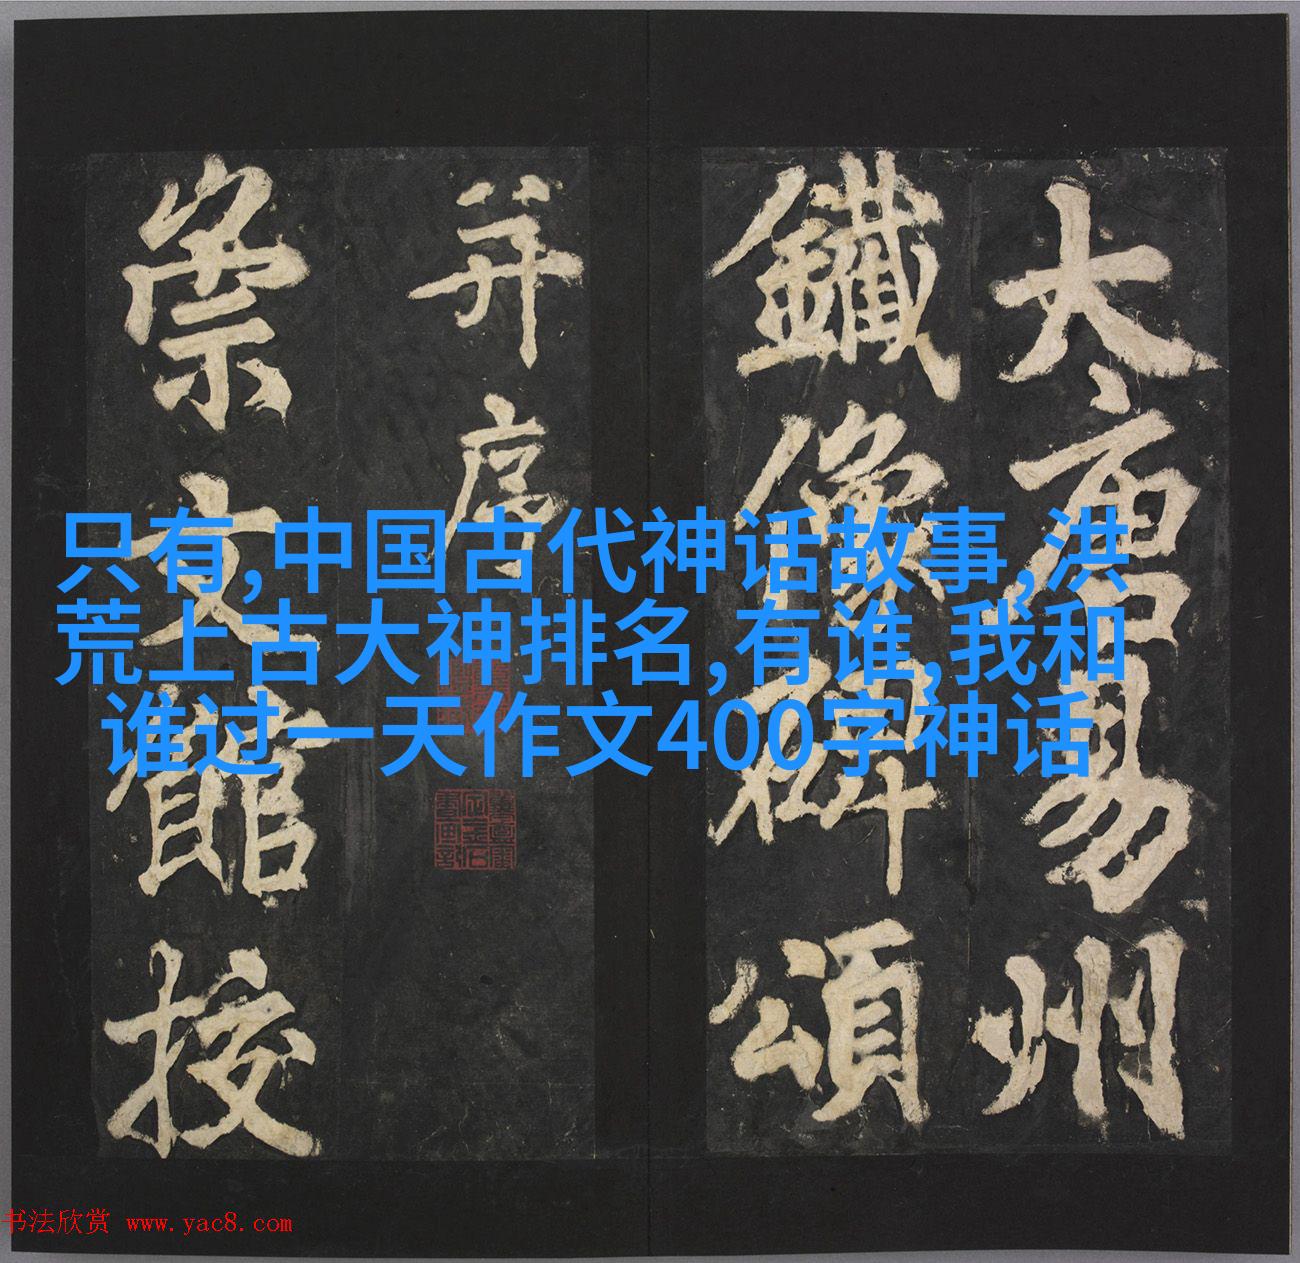 大唐易州
鐵像碑頌
并序
崇文館校
只有,中国古代神话故事,洪
荒上古大神排名,有谁,我和
谁过一天作文400字神话
书法欣赏 www.yac8.com